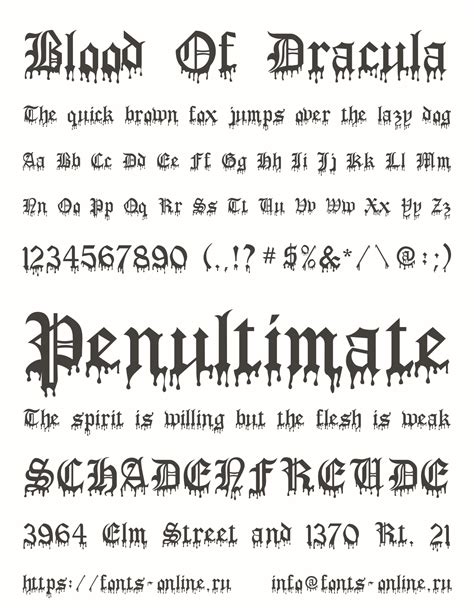 Blood Of Dracula
The quick brown fox jumps over the lazy dog
Aa Bb Cc Dd Ee Ff Gg Hh Ii Jj Kk Ll Mm
Nn Oo Pp Qq Rr Ss Tt Uu Vv Ww Xx Yy Zz
1234567890 (.,!? # $%&*/\@:;)
Penultimate
The spirit is willing but the flesh is weak
SCHADENFREUDE
3964 Elm Street and 1370 Rt. 21
https://fonts-online.ru info@fonts-online.ru